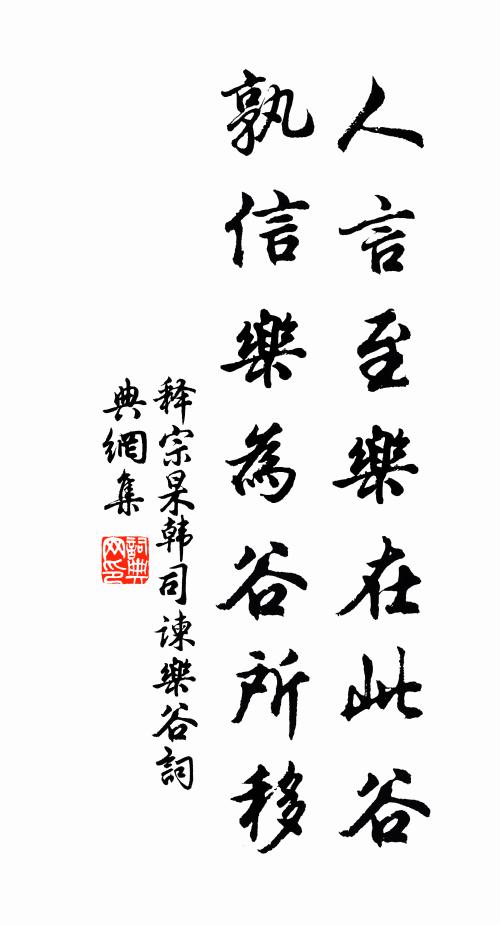 人言至樂在此谷
孰信樂為谷所移
释宗杲韩司谏樂谷詞
典網集
詞典网印